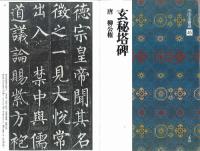 玄秘塔碑
唐 柳公権
德宗皇帝聞其名
徵之一見大悅常
出入 禁中與儒
道議論賜紫方袍